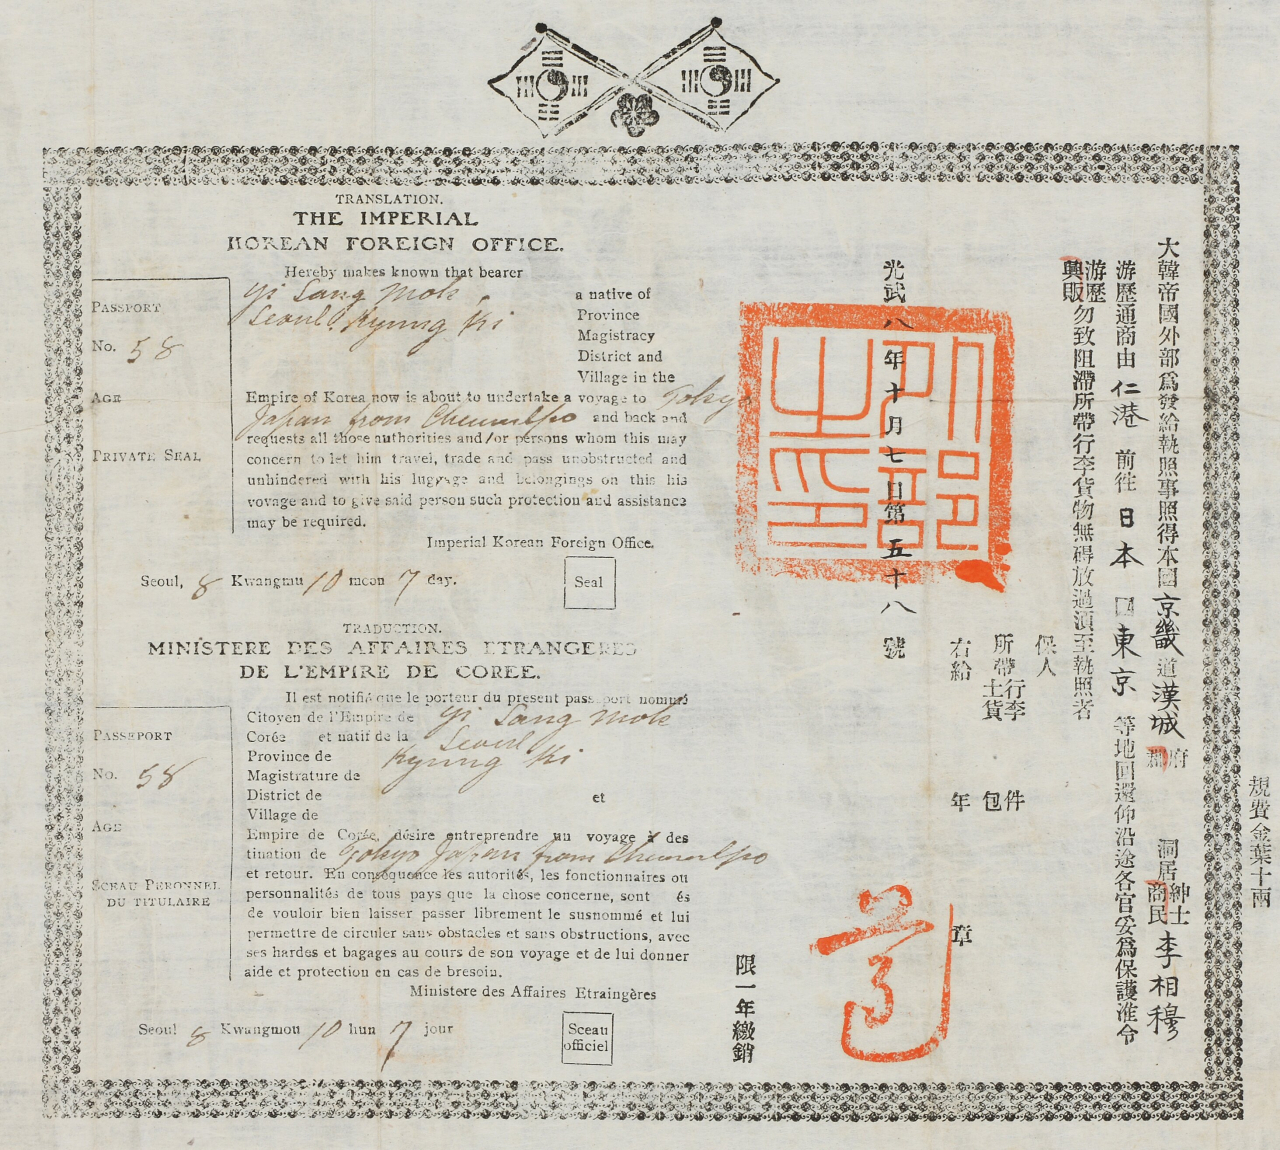 TRANSLATION.
THE IMPERIAL
KOREAN FOREIGN OFFICE.
Hereby makes known that bearer
Yi Sang Mok
a native of
Seoul, Kyung Ki
Province
Magistracy
District and
Village in the
Empire of Korea now is about to undertake a voyage to Tokyo
Japan from Chemulpo and back and
requests all those authorities and/or persons whom this may
concern to let him travel, trade and pass unobstructed and
unhindered with his luggage and belongings on this his
voyage and to give said person such protection and assistance
may be required.
Imperial Korean Foreign Office.
Seoul, 8 Kwangmu 10 moon 7 day.
Seal
PASSPORT
No. 58
AGE
PRIVATE SEAL
TRADUCTION.
MINISTERE DES AFFAIRES ETRANGERES
DE L'EMPIRE DE COREE.
Il est notifié que le porteur du present passeport nommé
Citoyen de l'Empire de Yi Sang Mok
Corée et natif de la Seoul
Province de Kyung Ki
Magistrature de
District de et
Village de
Empire de Corée, désire entreprendre un voyage à des
tination de Tokyo Japan from Chemulpo
et retour. En conséquence les autorités, les fonctionnaires ou
personnalités de tous pays que la chose concerne, sont és
de vouloir bien laisser passer librement le susnommé et lui
permettre de circuler sans obstacles et sans obstructions, avec
ses hardes et bagages au cours de son voyage et de lui donner
aide et protection en cas de bresoin.
Ministere des Affaires Etraingères
Seoul 8 Kwangmou 10 hun 7 jour
Sceau
officiel
PASSEPORT
No. 58
AGE
SCEAU PERONNEL
DU TITULAIRE
規費金葉十兩
大韓帝國外部爲發給執照事照得本國京畿道漢城府郡 洞居紳士商民李相穆
游歷通商由仁港前往日本國東京等地回還仰沿途各官妥爲保護准令
游歷興販勿致阻滯所帶行李貨物無碍放過須至執照者
保人
所帶行李土貨 件包
右給 年 章
光武八年十月七日第五十八號
外部之印
限一年繳銷